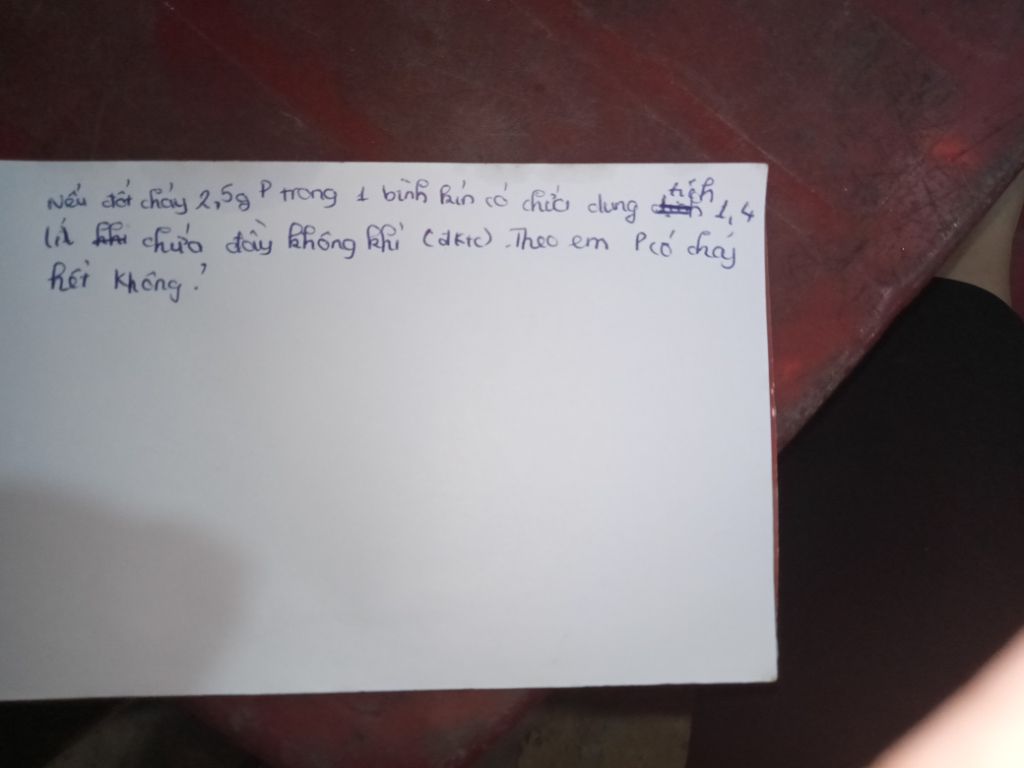 Nếu đốt cháy 2,5g P trong 1 bình kín có chứa dung tích 1,4
lít chứa đầy không khí (đktc). Theo em P có cháy
hết không?